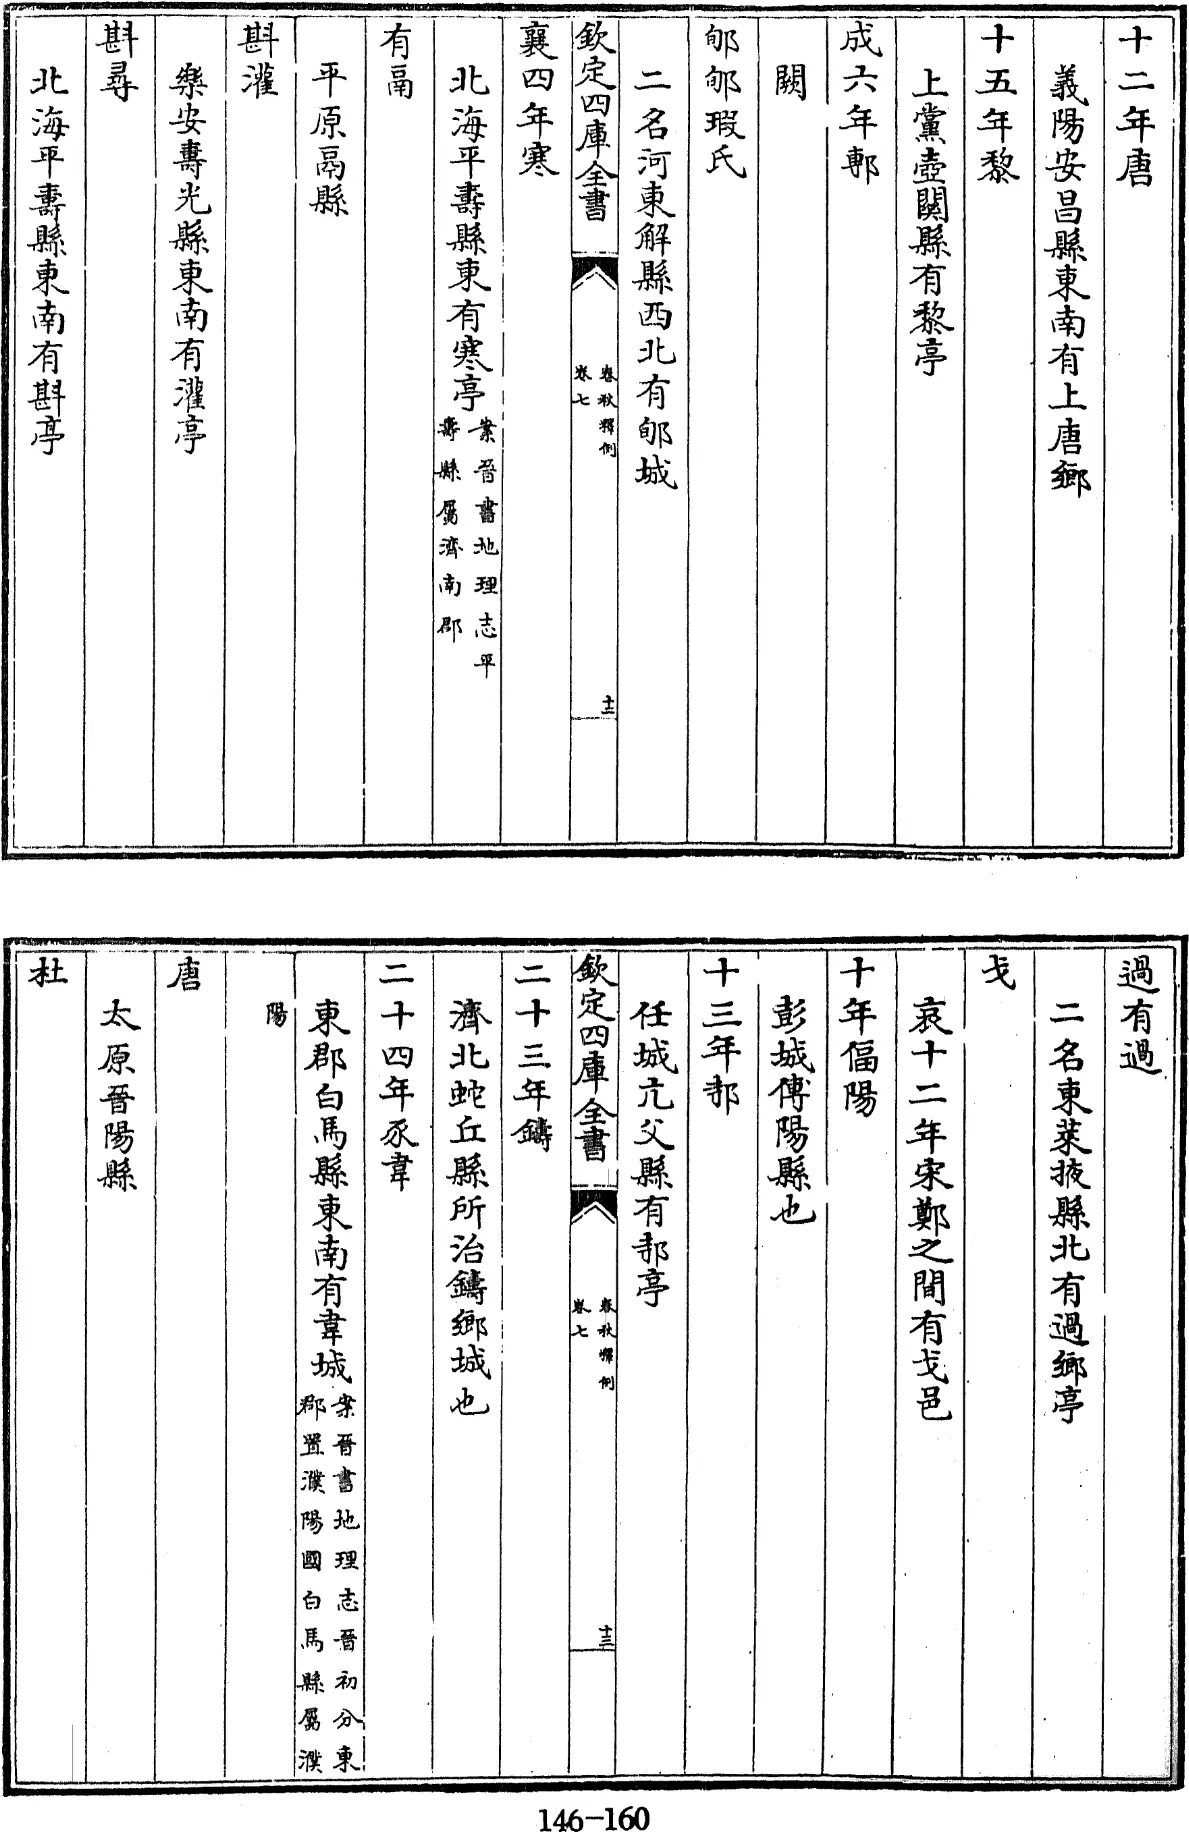 十二年唐
義陽安昌縣東南有上唐鄉
十五年黎
上黨壺關縣有黎亭
成六年鄟
闕
郇郇瑕氏
二名河東解縣西北有郇城
欽定四庫全書
春秋釋例
卷七
十二
襄四年寒
北海平壽縣東有寒亭案晉書地理志平
壽縣屬濟南郡
有鬲
平原鬲縣
斟灌
樂安壽光縣東南有灌亭
斟尋
北海平壽縣東南有斟亭
過有過
二名東萊掖縣北有過鄉亭
戈
哀十二年宋鄭之間有戈邑
十年偪陽
彭城傅陽縣也
十三年邿
任城亢父縣有邿亭
欽定四庫全書
春秋釋例
卷七
十三
二十三年鑄
濟北蛇丘縣所治鑄鄉城也
二十四年豕韋
東郡白馬縣東南有韋城案晉書地理志晉初分東
郡置濮陽國白馬縣屬濮
陽
唐
太原晉陽縣
杜
146-160